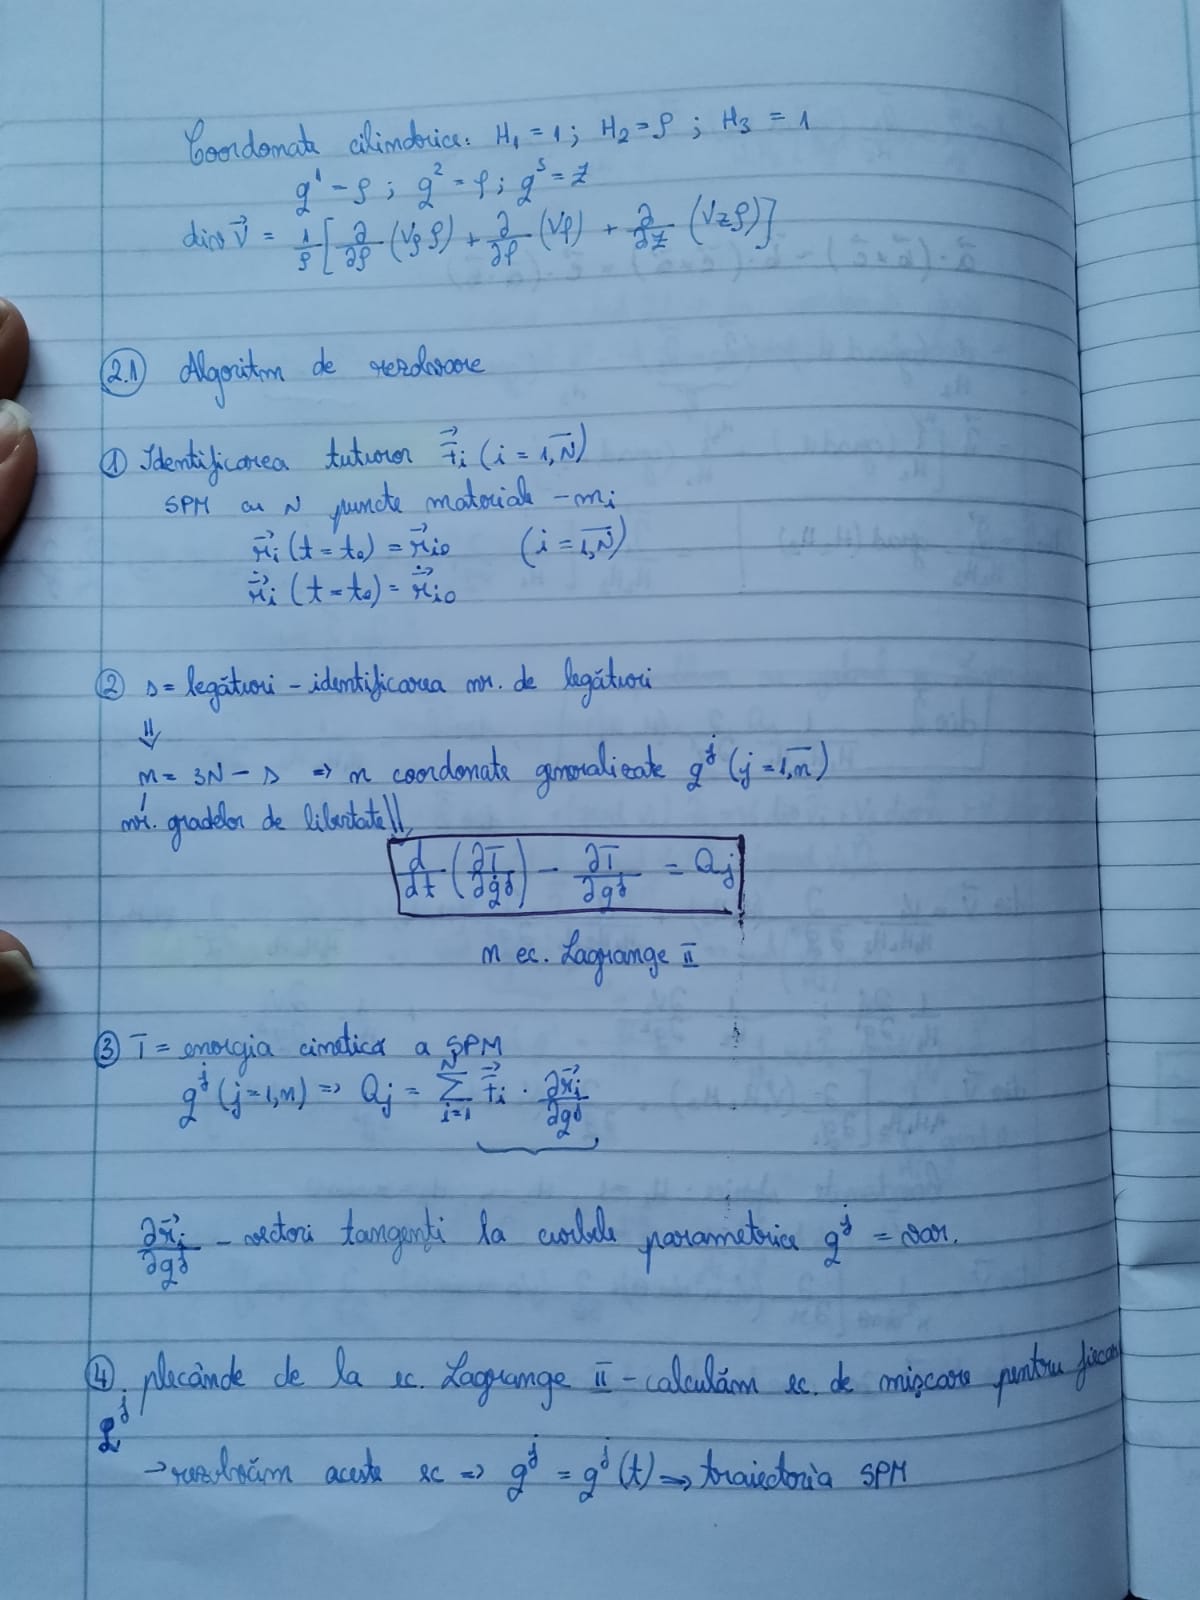 Coordonate cilindrice: H₁ = 1; H₂ = ρ; H₃ = 1
q¹ = ρ; q² = φ; q³ = z
div V⃗ = 1/ρ [∂/∂ρ (Vρ ρ) + ∂/∂φ (Vφ) + ∂/∂z (Vz ρ)]
2.1 Algoritm de rezolvare
① Identificarea tuturor F⃗i (i = 1,N)
SPM cu N puncte materiale - mi
r⃗i (t = t₀) = r⃗i0 (i = 1,N)
ṙ⃗i (t = t₀) = ṙ⃗i0
② s = legături - identificarea nr. de legături
⇓
n = 3N - s => n coordonate generalizate qʲ (j = 1,n)
nr. gradelor de libertate ⇓
d/dt (∂T/∂q̇ʲ) - ∂T/∂qʲ = Qj
n ec. Lagrange II
③ T = energia cinetică a SPM
qʲ (j = 1,n) => Qj = Σ_{i=1}^{N} F⃗i · ∂r⃗i/∂qʲ
∂r⃗i/∂qʲ - vectori tangenți la curbele parametrice qʲ = var.
④ plecânde de la ec. Lagrange II - calculăm ec. de mișcare pentru fiecare
qʲ
→ rezolvăm aceste ec => qʲ = qʲ(t) => traiectoria SPM